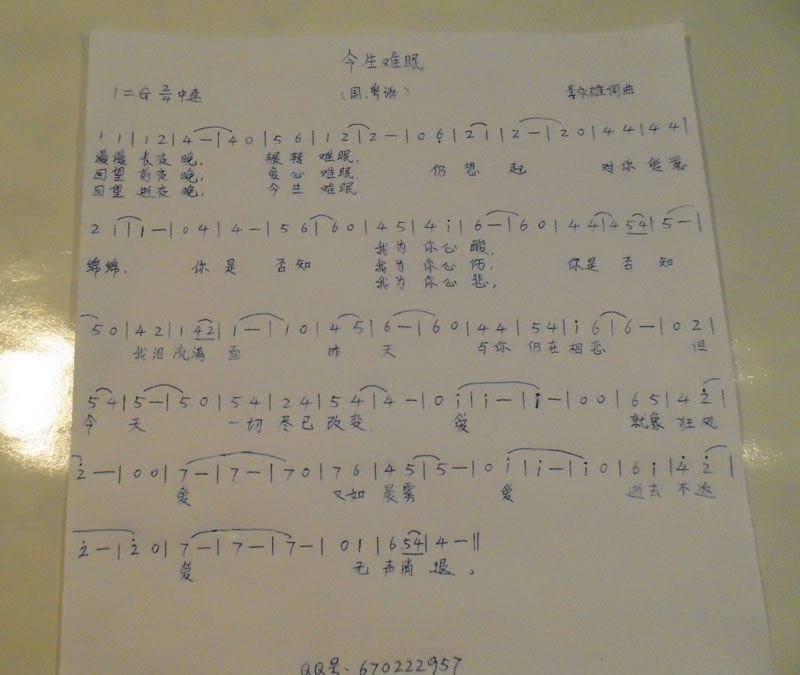 今生难眠
1=G 2/4 中速 (国、粤语) 李永雄词曲
1 1 | 1 2 | 4 — | 4 0 | 5 6 | 1 2 | 2 — | 0 6̣ | 2 1 | 2 — | 2 0 | 4 4 | 4 4 |
漫漫 长夜 晚, 辗转 难眠, 仍 想 起 对你 爱意
回望 前夜 晚, 爱心 难眠.
回望 逝夜 晚, 今生 难眠.
2 1 | 1 — | 0 4 | 4 — | 5 6 | 6 0 | 4 5 | 4 i | 6 — | 6 0 | 4 4 | 4 54 | 5 — |
我为 你心 酸,
绵绵. 你是 否知 我为 你心 伤, 你是 否知
我为 你心 悲,
5 0 | 4 2 | 1 42 | 1 — | 1 0 | 4 5 | 6 — | 6 0 | 4 4 | 5 4 | i 6 | 6 — | 0 2 |
我泪 流满 面 昨 天 与你 仍在 相恋 但
5 4 | 5 — | 5 0 | 5 4 | 2 4 | 5 4 | 4 — | 0 i | i — | i — | 0 0 | 6 5 | 4 2̇ |
今 天 一切 尽已 改变. 爱 就象 狂风
2̇ — | 0 0 | 7 — | 7 — | 7 0 | 7 6 | 4 5 | 5 — | 0 i | i — | i 0 | 6 i | 4̇ 2̇ |
爱 又如 晨雾 爱 逝去 不返
2̇ — | 2̇ 0 | 7 — | 7 — | 7 — | 0 1 | 6 54 | 4 — ||
爱 无 声消 退。
QQ号. 670222957